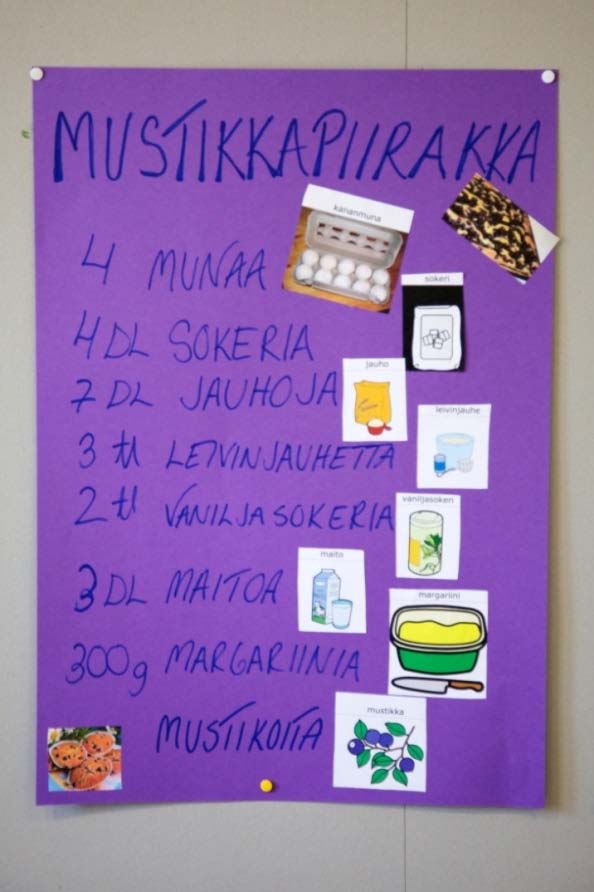 MUSTIKKAPIIRAKKA
kananmuna
4 MUNAA
sokeri
4 DL SOKERIA
jauho
7 DL JAUHOJA
leivinjauhe
3 tl LEIVINJAUHETTA
vaniljasokeri
2 tl VANILJASOKERIA
maito
3 DL MAITOA
margariini
300g MARGARIINIA
mustikka
MUSTIKOITA